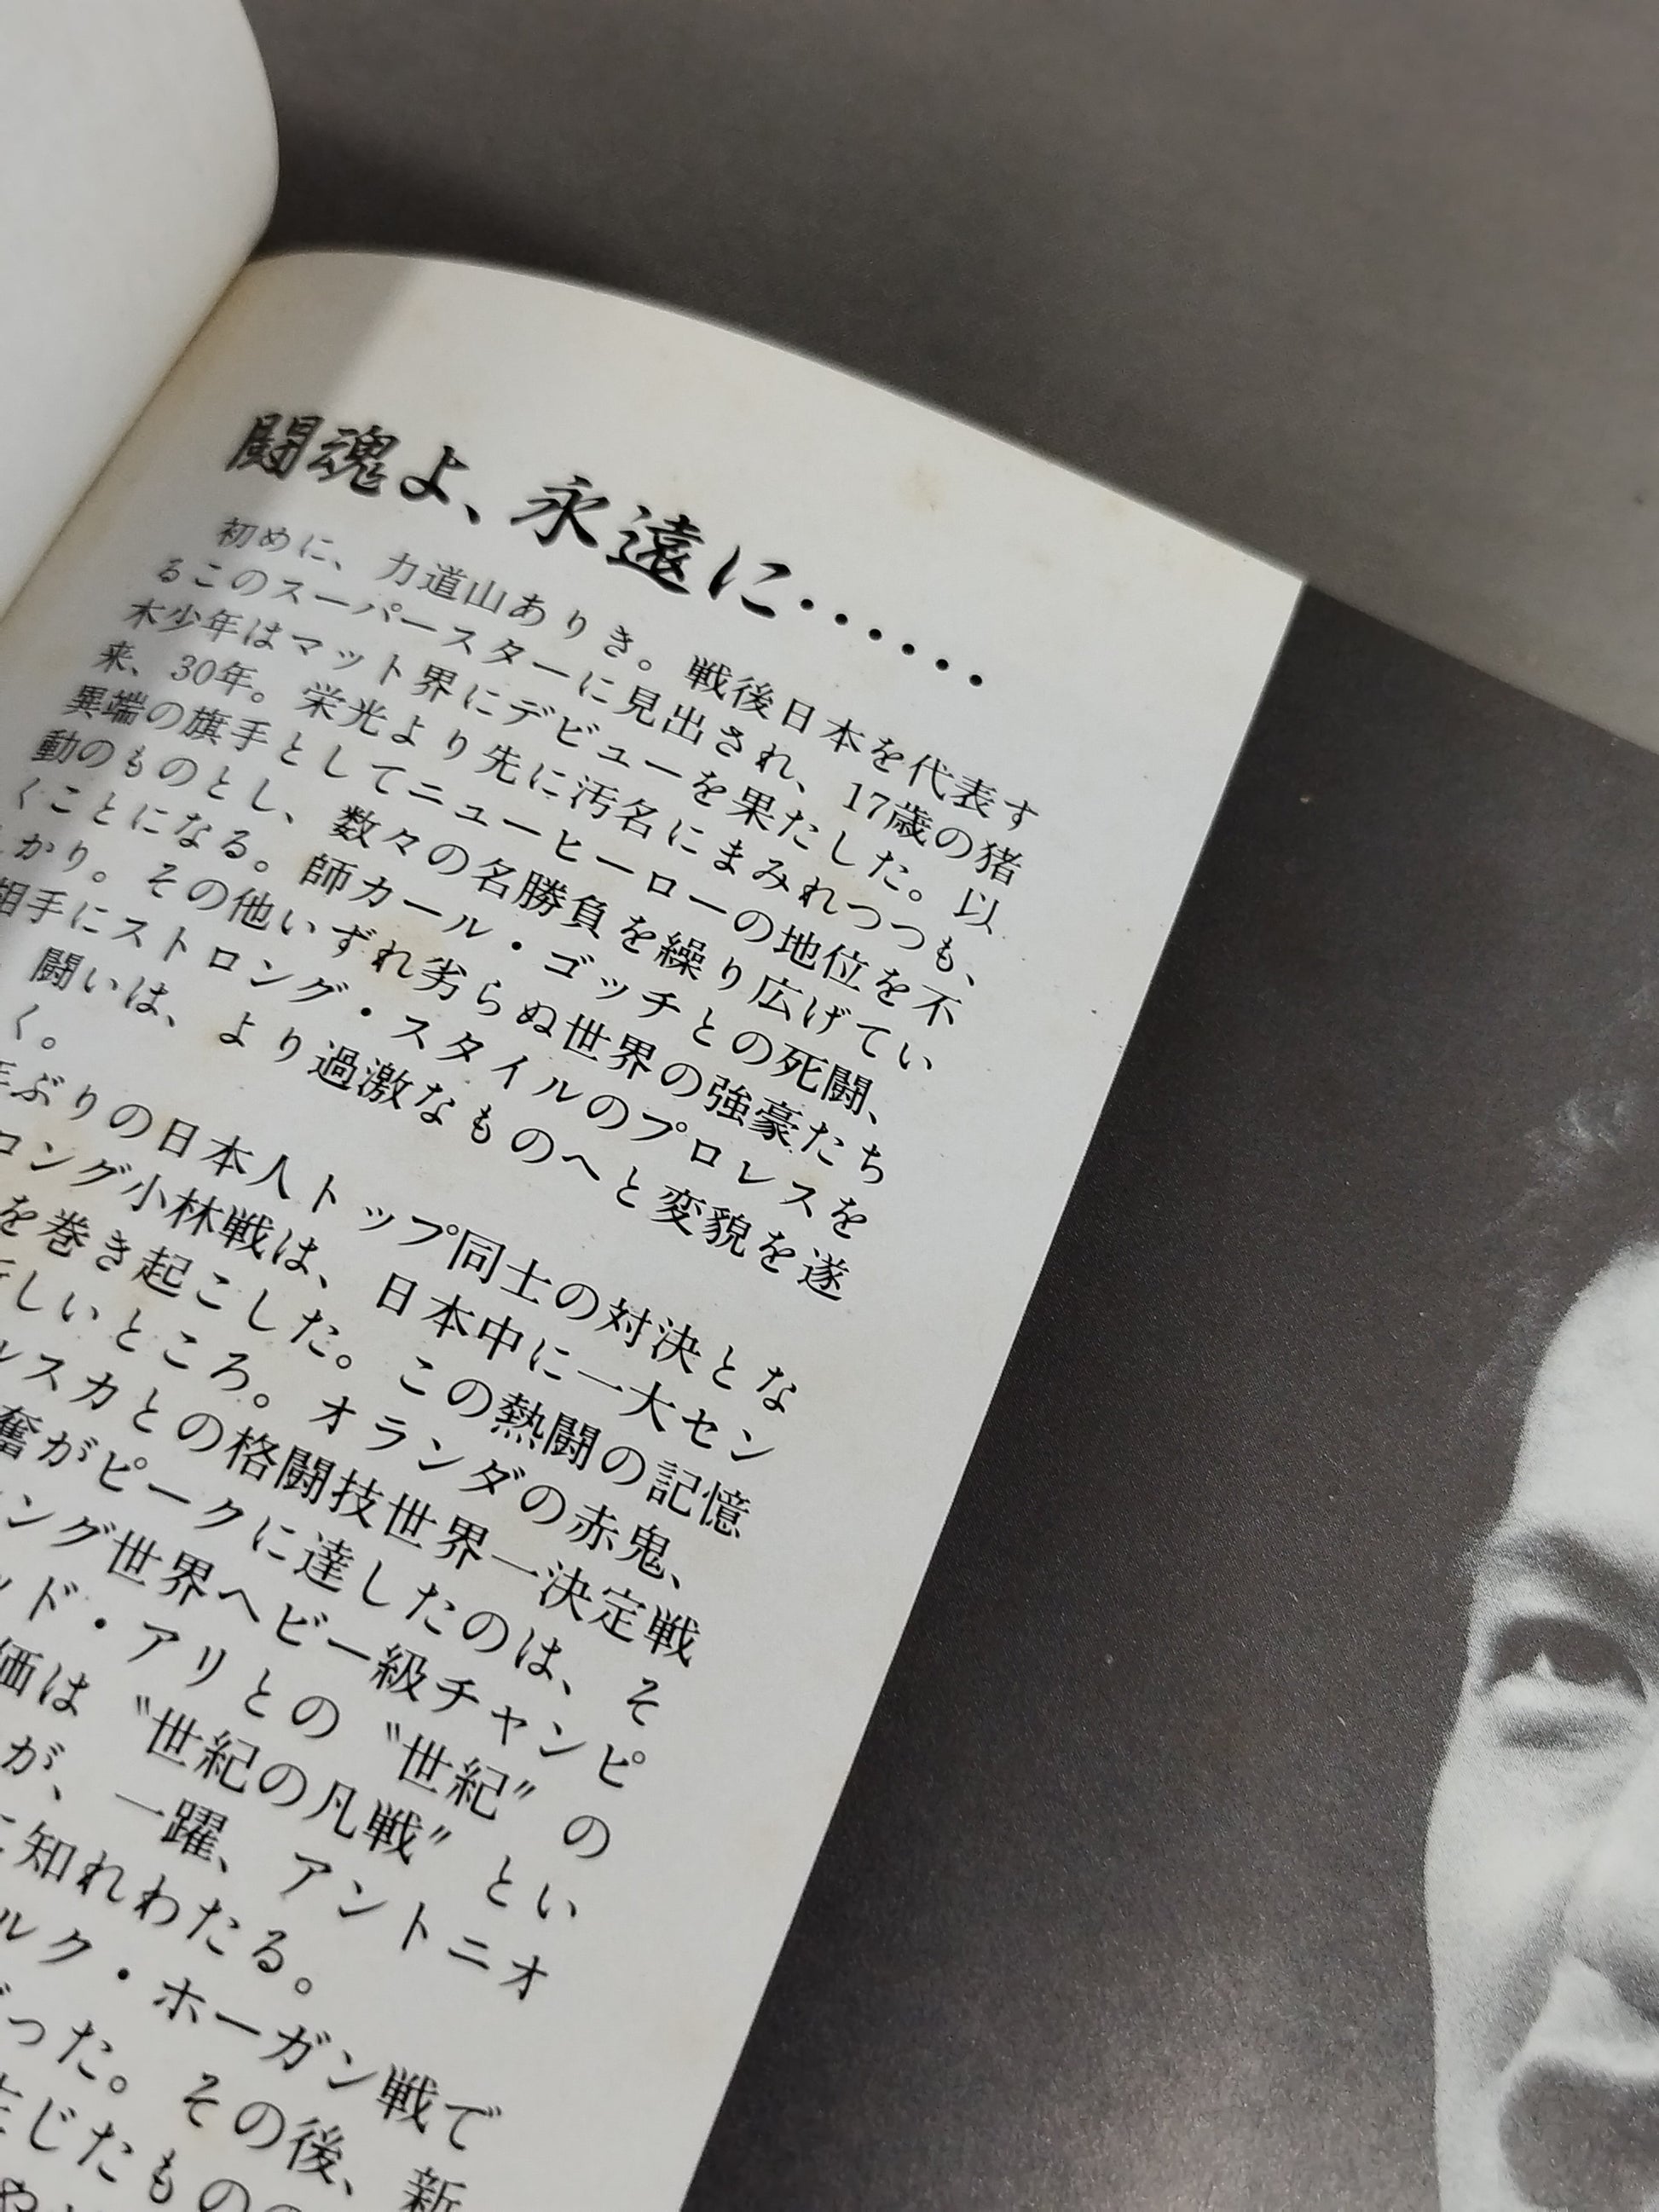 闘魂よ、永遠に‥‥‥
初めに、力道山ありき。戦後日本を代表す
るこのスーパースターに見出され、17歳の猪
木少年はマット界にデビューを果たした。以
来、30年。栄光より先に汚名にまみれつつも、
異端の旗手としてニューヒーローの地位を不
動のものとし、数々の名勝負を繰り広げてい
くことになる。師カール・ゴッチとの死闘、
かり。その他いずれ劣らぬ世界の強豪たち
相手にストロング・スタイルのプロレスを
闘いは、より過激なものへと変貌を遂
く。
ぶりの日本人トップ同士の対決とな
ロング小林戦は、日本中に一大セン
を巻き起こした。この熱闘の記憶
しいところ。オランダの赤鬼、
ルスカとの格闘技世界一決定戦
奮がピークに達したのは、そ
ング世界ヘビー級チャンピ
ッド・アリとの〝世紀〟の
価は〝世紀の凡戦〟とい
が、一躍、アントニオ
知れわたる。
ルク・ホーガン戦で
った。その後、新
じたものの